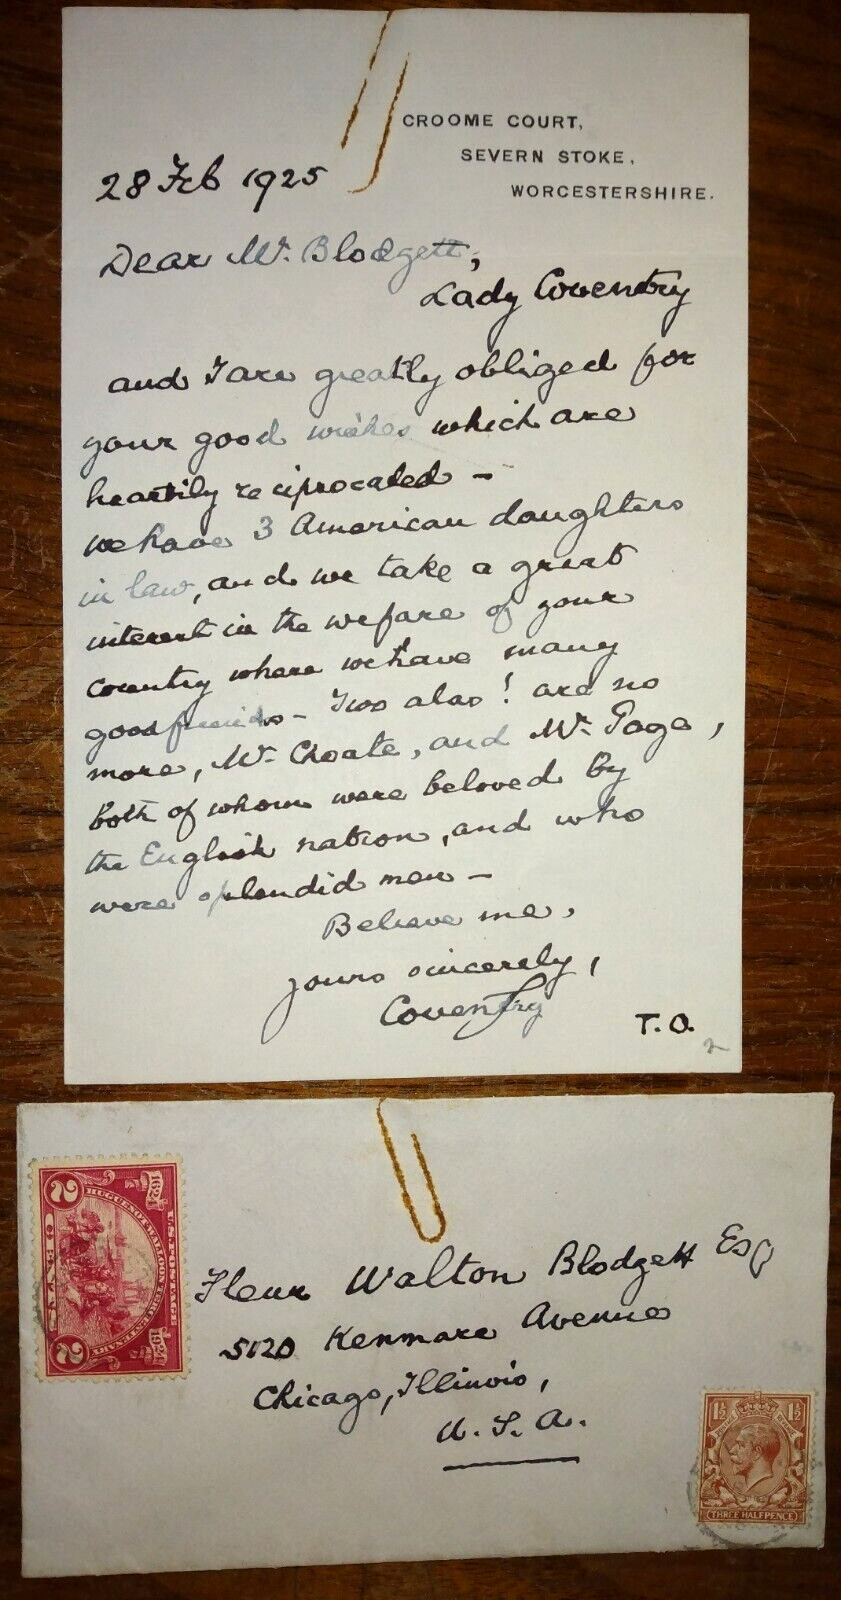 CROOME COURT,
SEVERN STOKE,
WORCESTERSHIRE.
28 Feb 1925
Dear Mr. Blodgett,
Lady Coventry
and I are greatly obliged for
your good wishes which are
heartily reciprocated —
we have 3 American daughters
in law, and we take a great
interest in the welfare of your
country where we have many
good friends - Two alas! are no
more, Mr. Choate, and Mr. Page,
both of whom were beloved by
the English nation, and who
were splendid men —
Believe me,
yours sincerely,
Coventry
T.O.
2
U.S. POSTAGE
HUGUENOT-WALLOON TERCENTENARY
1624
1924
2
CENTS
2
Fleur Walton Blodgett Esq
5120 Kenmore Avenue
Chicago, Illinois,
U.S.A.
1½
1½
POSTAGE
REVENUE
THREE HALFPENCE